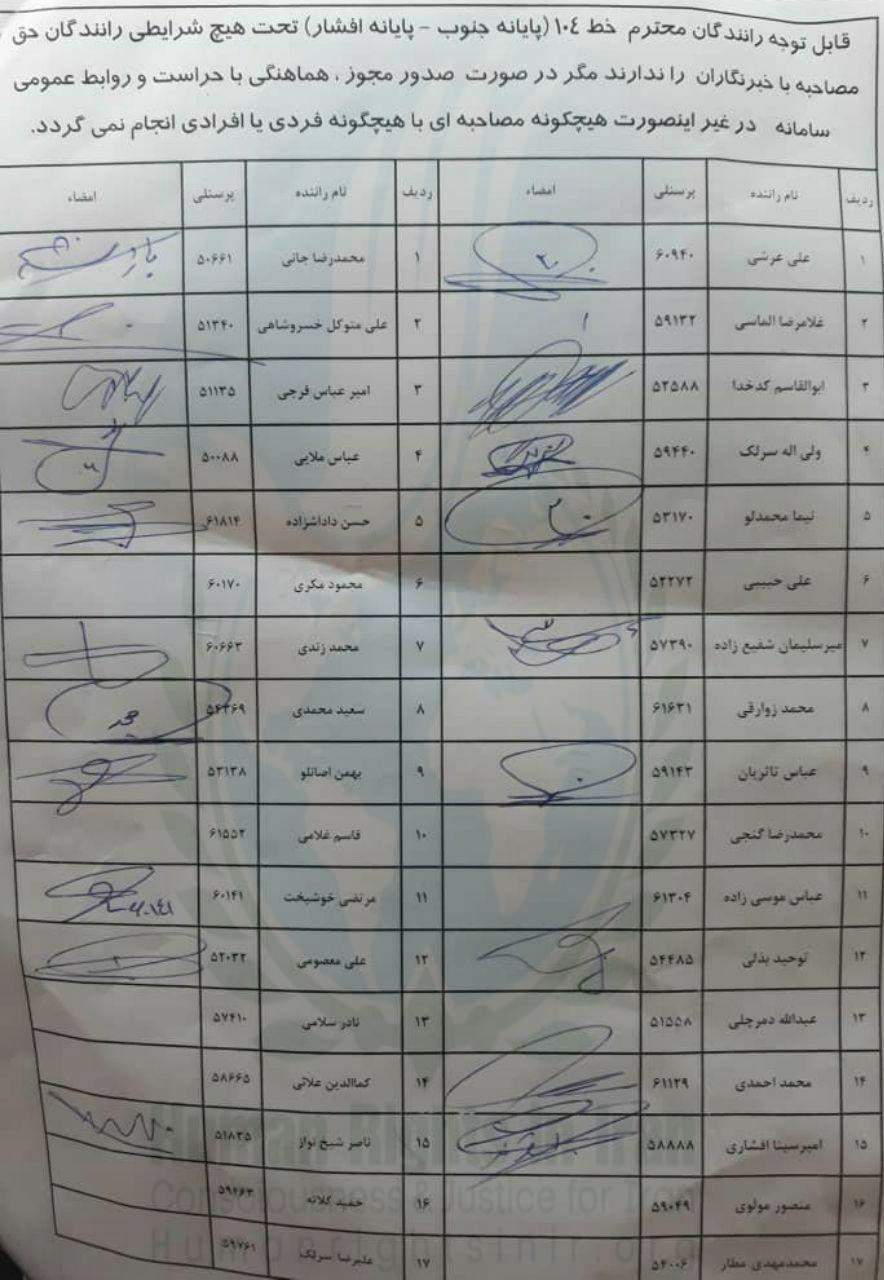 قابل توجه رانندگان محترم خط ١٠٤ (پایانه جنوب - پایانه افشار) تحت هیچ شرایطی رانندگان حق
مصاحبه با خبرنگاران را ندارند مگر در صورت صدور مجوز ، هماهنگی با حراست و روابط عمومی
سامانه در غیر اینصورت هیچکونه مصاحبه ای با هیچگونه فردی یا افرادی انجام نمی گردد.
ردیف نام راننده پرسنلی امضاء ردیف نام راننده پرسنلی امضاء
۱ علی عرشی ۶۰۹۴۰ ۱ محمدرضا جانی ۵۰۶۶۱
۲ غلامرضا الماسی ۵۹۱۳۲ ۲ علی متوکل خسروشاهی ۵۱۳۴۰
۳ ابوالقاسم کدخدا ۵۲۵۸۸ ۳ امیر عباس فرجی ۵۱۱۳۵
۴ ولی اله سرلک ۵۹۴۴۰ ۴ عباس ملایی ۵۰۰۸۸
۵ نیما محمدلو ۵۳۱۷۰ ۵ حسن داداشزاده ۶۱۸۱۴
۶ علی حبیبی ۵۲۲۷۲ ۶ محمود مکری ۶۰۱۷۰
۷ میرسلیمان شفیع زاده ۵۷۳۹۰ ۷ محمد زندی ۶۰۶۶۳
۸ محمد زوارقی ۶۱۶۳۱ ۸ سعید محمدی
۹ عباس تاثریان ۵۹۱۴۳ ۹ بهمن اصانلو ۵۳۱۳۸
۱۰ محمدرضا گنجی ۵۷۳۲۷ ۱۰ قاسم غلامی ۶۱۵۵۲
۱۱ عباس موسی زاده ۶۱۳۰۴ ۱۱ مرتضی خوشبخت ۶۰۱۴۱
۱۲ توحید بذلی ۵۴۴۸۵ ۱۲ علی معصومی ۵۲۰۳۲
۱۳ عبدالله دمرچلی ۵۱۵۵۸ ۱۳ نادر سلامی ۵۷۴۱۰
۱۴ محمد احمدی ۶۱۱۲۹ ۱۴ کماالدین علائی ۵۸۶۶۵
۱۵ امیرسینا افشاری ۵۸۸۸۸ ۱۵ ناصر شیخ نواز ۵۱۸۳۵
۱۶ منصور مولوی ۵۹۰۴۹ ۱۶ حمید کلاته
۱۷ محمدمهدی عطار ۵۴۰۰۶ ۱۷ علیرضا سرلک ۵۹۷۶۱
Human Rights in Iran
Consciousness & Justice for Iran
Humanrightsinir.org